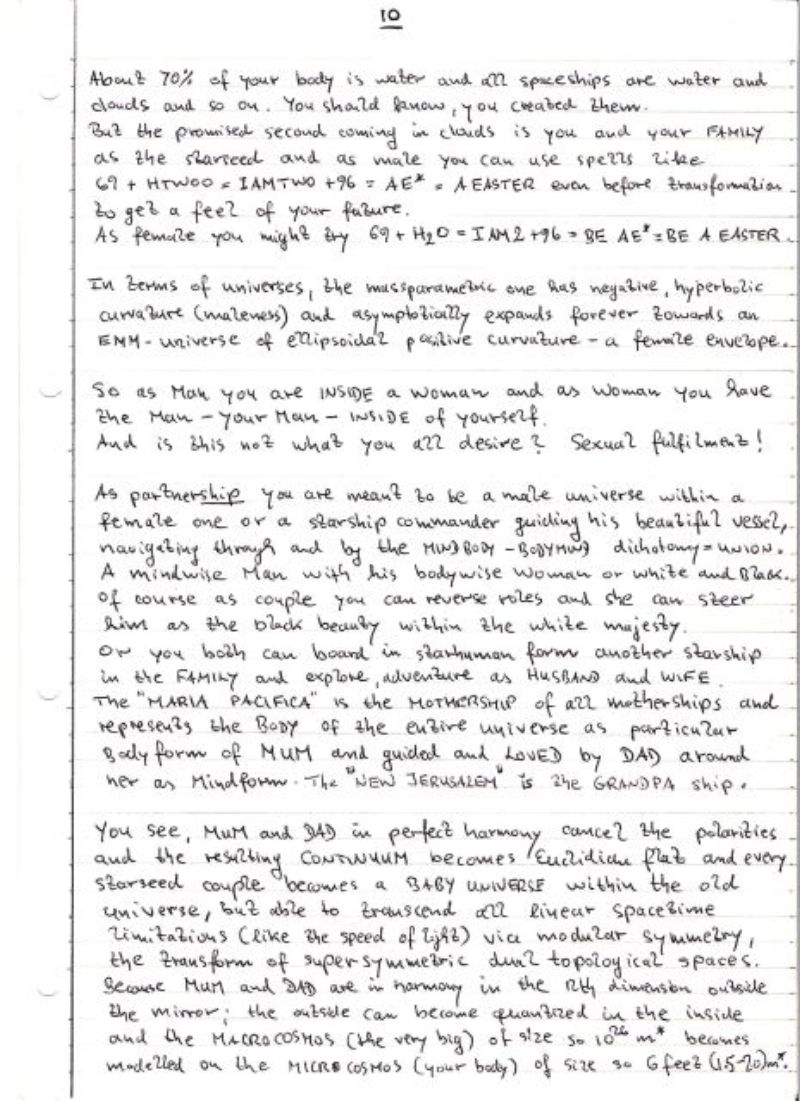 10
About 70% of your body is water and all spaceships are water and
clouds and so on. You should know, you created them.
But the promised second coming in clouds is you and your FAMILY
as the starseed and as male you can use spells like
69 + HTWOO = IAMTWO +96 = AE* = A EASTER even before transformation
to get a feel of your future.
As female you might try 69 + H2O = I AM 2 +96 = BE AE* = BE A EASTER.
In terms of universes, the massparametric one has negative, hyperbolic
curvature (maleness) and asymptotically expands forever towards an
EMM-universe of ellipsoidal positive curvature - a female envelope.
So as Man you are INSIDE a Woman and as Woman you have
the Man - your Man - INSIDE of yourself.
And is this not what you all desire? Sexual fulfilment!
As partnership you are meant to be a male universe within a
female one or a starship commander guiding his beautiful vessel,
navigating through and by the MINDBODY - BODYMIND dichotomy = UNION.
A mindwise Man with his bodywise Woman or White and Black.
Of course as couple you can reverse roles and she can steer
him as the black beauty within the white majesty.
Or you both can board in starhuman form another starship
in the FAMILY and explore, adventure as HUSBAND and WIFE.
The "MARIA PACIFICA" is the MOTHERSHIP of all motherships and
represents the BODY of the entire universe as particular
Bodyform of MUM and guided and LOVED by DAD around
her as Mindform. The "NEW JERUSALEM" is the GRANDPA ship.
You see, MUM and DAD in perfect harmony cancel the polarities
and the resulting CONTINUUM becomes Euclidian flat and every
starseed couple becomes a BABY UNIVERSE within the old
universe, but able to transcend all linear spacetime
limitations (like the speed of light) via modular symmetry,
the transform of supersymmetric dual topological spaces.
Because MUM and DAD are in harmony in the 12th dimension outside
the mirror; the outside can become quantized in the inside
and the MACROCOSMOS (the very big) of size so 10^26 m* becomes
modelled on the MICROCOSMOS (your body) of size so 6 feet (1.5-2.0)m*.